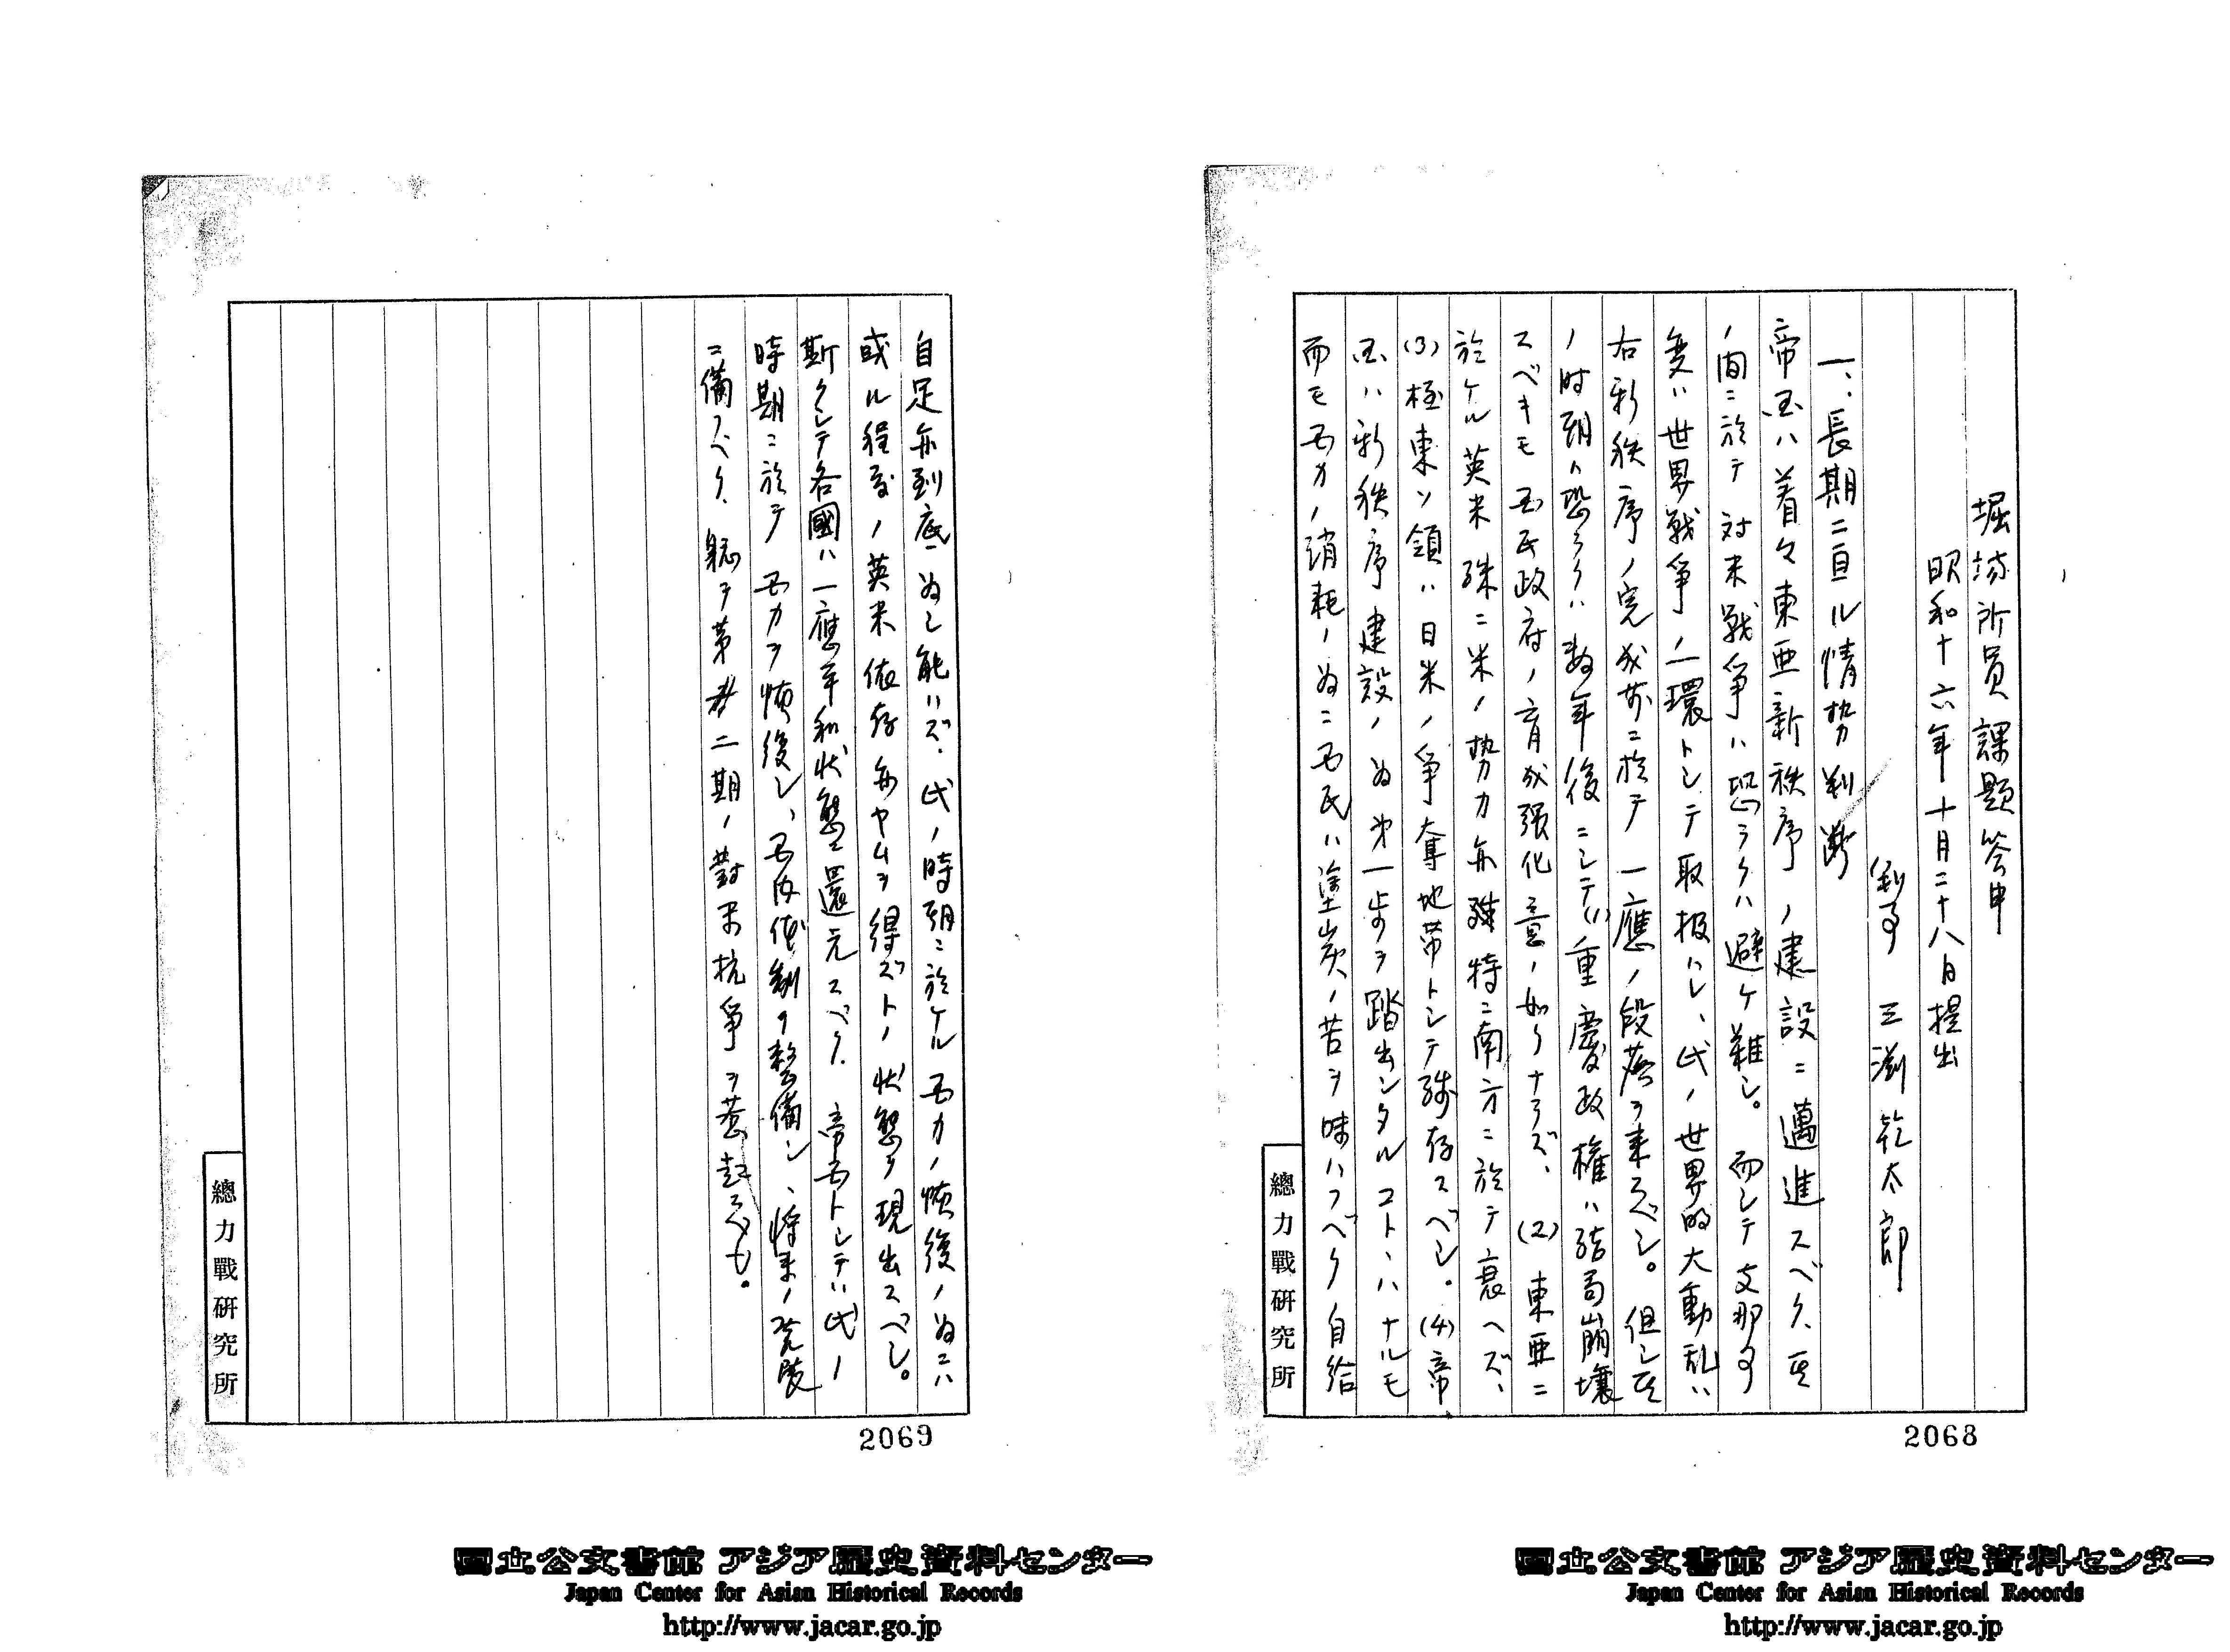 堀場所員課題答申
昭和十六年十月二十八日提出
判事 三淵乾太郎
一、長期ニ亘ル情勢判断
帝国ハ着々東亜新秩序ノ建設ニ邁進スベク、其
ノ間ニ於テ対米戦争ハ恐ラクハ避ケ難シ。而シテ支那事
変ハ世界戦争ノ一環トシテ取扱ハレ、此ノ世界的大動乱ハ
右新秩序ノ完成前ニ於テ一應ノ段落ヲ来スベシ。但シ其
ノ時期ハ恐ラクハ数年後ニシテ(1)重慶政権ハ結局崩壊
スベキモ国民政府ノ育成強化意ノ如クナラズ、(2)東亜ニ
於ケル英米殊ニ米ノ勢力亦殊特ニ南方ニ於テ衰ヘズ、
(3)極東ソ領ハ日米ノ争奪地帯トシテ残存スベシ。(4)帝
国ハ新秩序建設ノ為第一歩ヲ踏出シタルコトヽハナルモ
而モ国力ノ消耗ノ為ニ国民ハ塗炭ノ苦ヲ味ハフベク自給
總力戰研究所
2068
自足亦到底為シ能ハズ、此ノ時期ニ於ケル国力ノ恢復ノ為ニハ
或ル程度ノ英米依存亦ヤムヲ得ズトノ状態ヲ現出スベシ。
斯クシテ各國ハ一應平和状態ニ還元スベク、帝国トシテハ此ノ
時期ニ於テ国力ヲ恢復シ、国内体制ヲ整備シ、将来ノ発展
ニ備フベク、軈テ第二期ノ對米抗爭ヲ惹起スベシ。
總力戰研究所
2069
國立公文書館 アジア歴史資料センター
Japan Center for Asian Historical Records
http://www.jacar.go.jp
國立公文書館 アジア歴史資料センター
Japan Center for Asian Historical Records
http://www.jacar.go.jp